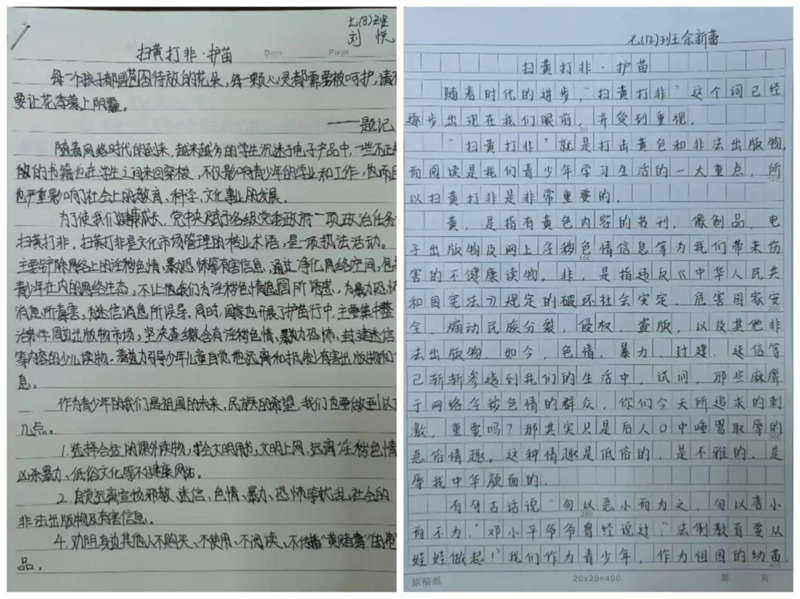 七(8)班
刘悦
扫黄打非·护苗
Date. Page.
每一个孩子都是含苞待放的花朵,每一颗心灵都需要被呵护,请不
要让花季蒙上阴霾。
——题记
随着网络时代的到来,越来越多的学生沉迷于电子产品中,一些不正
版的书籍也在学生之间来回穿梭,不仅影响青少年的学业和工作,
也严重影响了社会上的教育、科学、文化事业的发展。
为了使我们健康成长,党中央赋予各级党委政府一项政治任务
扫黄打非。扫黄打非是文化市场管理的专业术语,是一项执法活动。
主要铲除网络上的淫秽色情、暴恐怖等有害信息,通过净化网络空间,包
青少年在内的网络生态,不让他们为淫秽色情信息所诱惑,为暴力恐怖
消息所毒害,为迷信消息所误导。同时,国家也开展护苗行动,主要集中整
治校园周边出版物市场,坚决查缴含有淫秽色情、暴力恐怖、封建迷信
等内容的少儿读物,着力引导少年儿童自觉地远离和抵制有害出版物和
息。
作为青少年的我们是祖国的未来,民族的希望,我们也要做到以下
几点。
1.选择合适的课外读物,学会文明用书,文明上网,远离淫秽色情
凶杀暴力、低俗文化等不健康网站。
2.自觉远离宣扬邪教、迷信、色情、暴力、恐怖等扰乱社会的
非法出版物及有害信息。
4.劝阻身边其他人不购买、不使用、不阅读、不传播“黄赌毒”
品。
七(12)班王余新蕾
扫黄打非·护苗
随着时代的进步,“扫黄打非”这个词已经
逐步出现在我们眼前,并受到重视。
“扫黄打非”就是打击黄色和非法出版物,
而阅读是我们青少年学习生活的一大重点,所
以扫黄打非是非常重要的。
黄,是指有黄色内容的书刊,像制品,电
子出版物及网上淫秽色情信息等为我们带来伤
害的不健康读物。非,是指违反《中华人民共
和国宪法》规定的破坏社会安定,危害国家安
全,煽动民族分裂,侵权,盗版,以及其他非
法出版物。如今,色情,暴力,封建,迷信等
已渐渐参透到我们的生活中,试问,那些麻痹
于网络淫秽色情的群众,你们今天所追求的刺
激,重要吗?那其实只是后人口中唾骂耻辱的
恶俗情趣。这种情趣是低俗的,是不雅的,是
辱我中华颜面的。
有句古话说“勿以恶小而为之,勿以善小
而不为。”邓小平爷爷曾经说过:“法制教育要从
娃娃做起!”我们作为青少年,作为祖国的幼苗
原稿纸 20×20=400 第 页